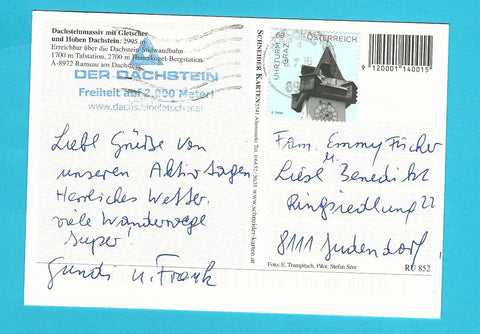 Dachsteinmassiv mit Gletscher
und Hohen Dachstein, 2995 m
Erreichbar über die Dachstein Südwandbahn
1700 m Talstation, 2700 m Hunerkogel-Bergstation
A-8972 Ramsau am Dachstein
DER DACHSTEIN
Freiheit auf 3.000 Meter!
www.dachsteingletscher.at
Liebe Grüße von
unseren Aktivtagen
Herrliches Wetter.
viele Wanderwege
super.
Gundi u. Frank
SCHNEIDER KARTEN
5541 Altenmarkt
www.schneider-karten.at
68
ÖSTERREICH
UHRTURM
GRAZ
9120001140015
Fam. Emmy Fischer
u.
Liesl Benedikt
Ringsiedlung 22
8111 Judendorf
Foto: E. Trampitsch, Pilot: Stefan Seer
RU 852